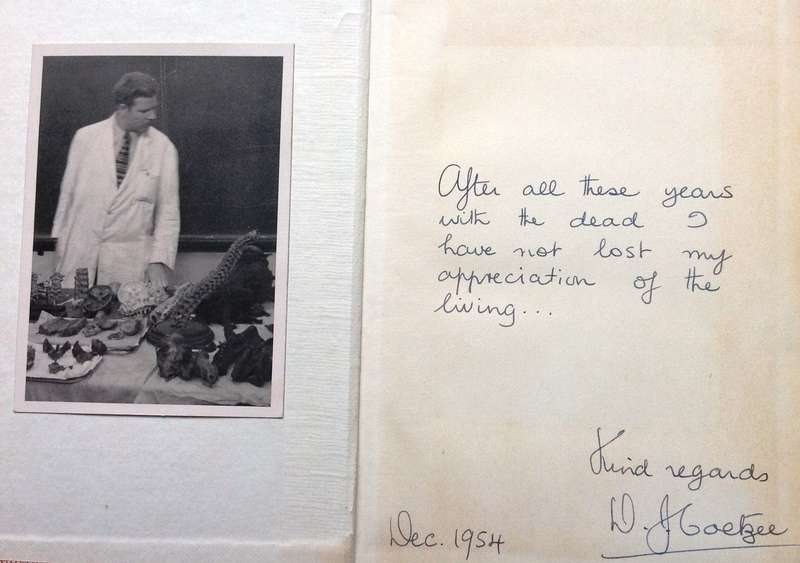 After all these years
with the dead I
have not lost my
appreciation of the
living...
Kind regards
W. J. Coetzee
Dec. 1954